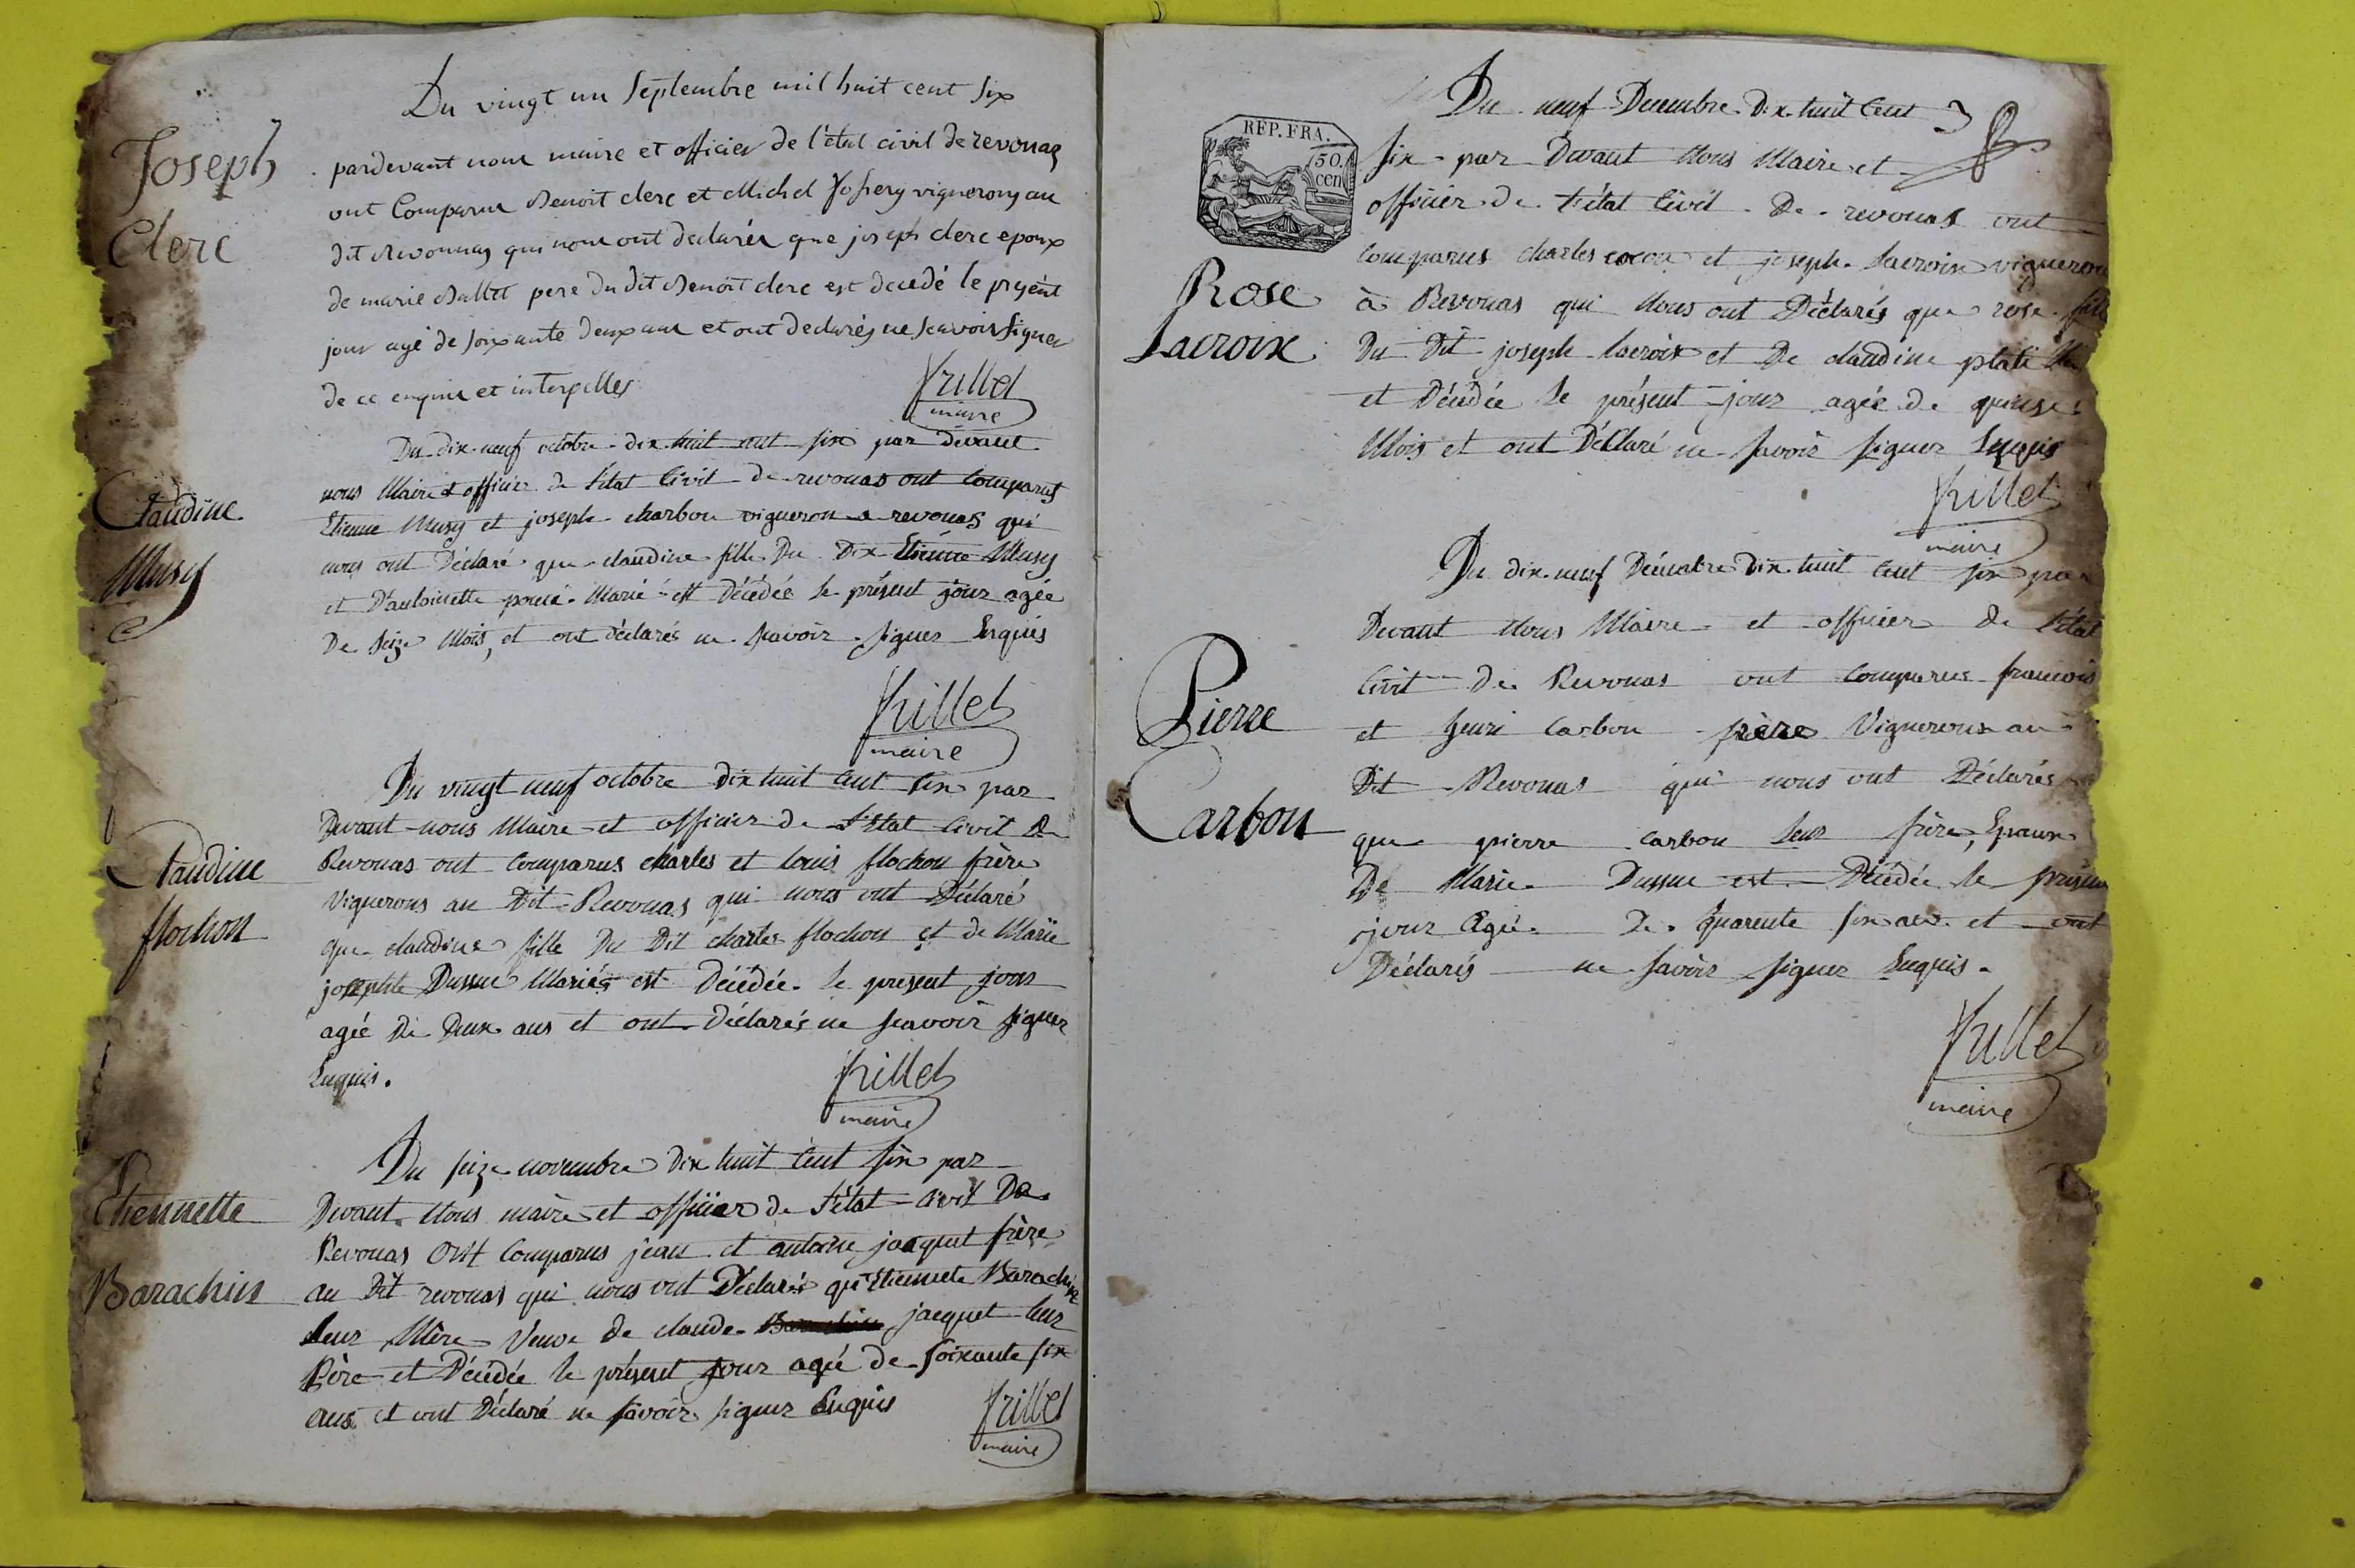 Du vingt un Septembre mil huit cent six
Joseph
Clerc
pardevant nous maire et officier de l'état civil de revonas
ont Comparus Benoit clerc et Michel Josserg vignerons au
dit Revonnas qui nous ont declarés que joseph clerc epoux
de marie Ballet pere du dit Benoit clerc est decedé le present
jour agé de soixante deux ans et ont declarés ne scavoir signer
de ce enquis et interpellés
frillet
maire
Du dix neuf octobre dix huit cent six par devant
Claudine
Musy
nous Maire & officier de l'état Civil de revonas ont Comparus
Etienne Musy et joseph charbon vigneron a revonas qui
nous ont Déclaré que claudine fille Du Dix Etienne Musy
et D'antoinette Marié est Décédée le présent jour agée
De seize Mois, et ont déclarés ne scavoir signer Enquis
frillet
maire
Du vingt neuf octobre dix huit Cent six par
Claudine
flochon
Devant nous Maire et officier de l'Etat Civil De
Revonas ont Comparus charles et louis flochon frère
Vignerons au Dit Revonas qui nous ont Déclaré
que claudine fille Du Dit charles flochon et de Marie
josephte Dussuc Mariés est Décédée le present jour
agée De Deux ans et ont Déclarés ne scavoir signer
Enquis.
frillet
maire
Du seize novembre Dix huit Cent six par
Etiennette
Barachin
Devant Nous maire et officier de l'état Civil De
Revonas ont Comparus jean et antoine jacquet frère
au Dit revonas qui nous ont Déclarés qu'Etiennete Barachin
leur Mère Veuve de claude jacquet leur
Père et Décédée le présent jour agée de soixante six
ans et ont Déclaré ne savoir signer Enquis
frillet
maire
Du neuf Decembre Dix huit Cent
REP. FRA.
50.
cen
Rose
Lacroix
six par Devant Nous Maire et
officier de l'état Civil De revonas ont
Comparus charles cocon et joseph Lacroix vigneron
à Revonas qui Nous ont Déclarés que rose fille
Du Dit joseph lacroix et De claudine
et Décédée le présent jour agée de quinse
Mois et ont Déclaré ne savoir signer Enquis
frillet
maire
Du dix neuf Décembre Dix huit Cent six par
Pierre
Carbon
Devant Nous Maire et officier de l'état
Civil De Revonas ont Comparus francois
et henri Carbon frère Vignerons au
Dit Revonas qui nous ont Déclarés
que pierre carbon leur frère, Epoux
De Marie Dussuc est Décédée le présent
jour Agée De quarente six ans et ont
Déclarés ne savoir signer Enquis.
frillet
maire